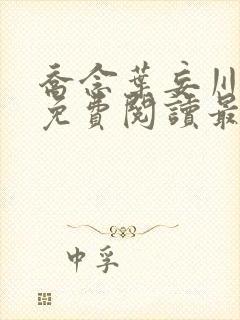 喬念葉妄川
免費閱讀最
中孚